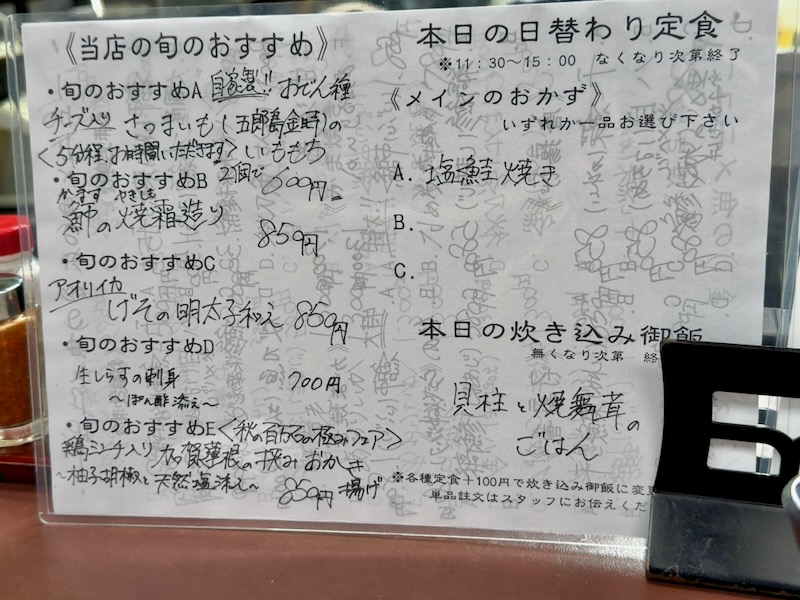 《当店の旬のおすすめ》
・旬のおすすめA 自家製!! おでん種
チーズ入り さつまいも(五郎島金時)の
<5分程、お時間いただきます> いももち
2個で 600円
・旬のおすすめB
かます やきしも
の焼霜造り 850円
・旬のおすすめC
アオリイカ
げその明太子和え 850円
・旬のおすすめD
生しらすの刺身 700円
～ぽん酢添え～
・旬のおすすめE <秋の百万石の極みフェア>
鶏ミンチ入り 加賀蓮根の挟みおかき
揚げ
～柚子胡椒と天然塩添え～ 850円
本日の日替わり定食
※11:30～15:00 なくなり次第終了
《メインのおかず》
いずれか一品お選び下さい
A. 塩鮭焼き
B.
C.
本日の炊き込み御飯
無くなり次第 終
貝柱と焼舞茸の
ごはん
※各種定食+100円で炊き込み御飯に変
単品註文はスタッフにお伝えくだ